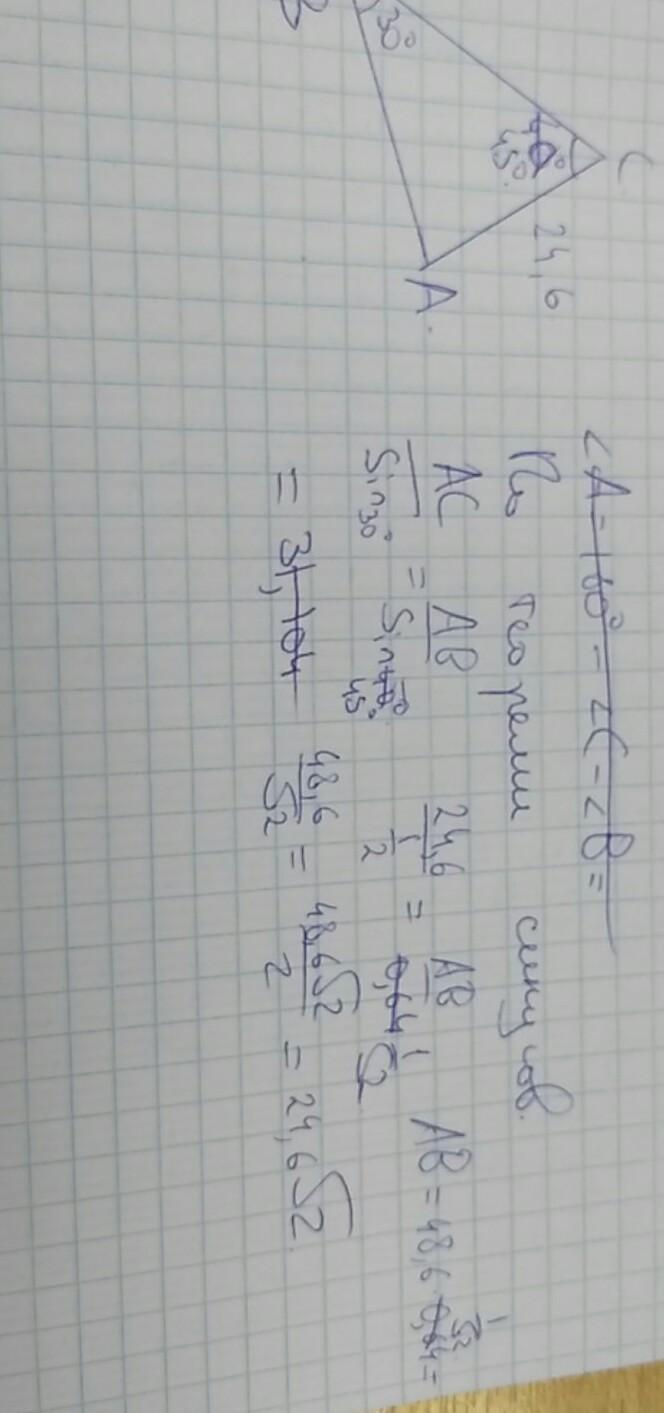 B 30° 45° C
24,6
A.
<A = 180° - <C - <B =
По теореме синусов.
AC/Sin30° = AB/Sin45° 24,6/(1/2) = AB/(1/√2) AB = 48,6 · 1/√2 =
= 31,104 48,6/√2 = 48,6√2/2 = 24,6√2.